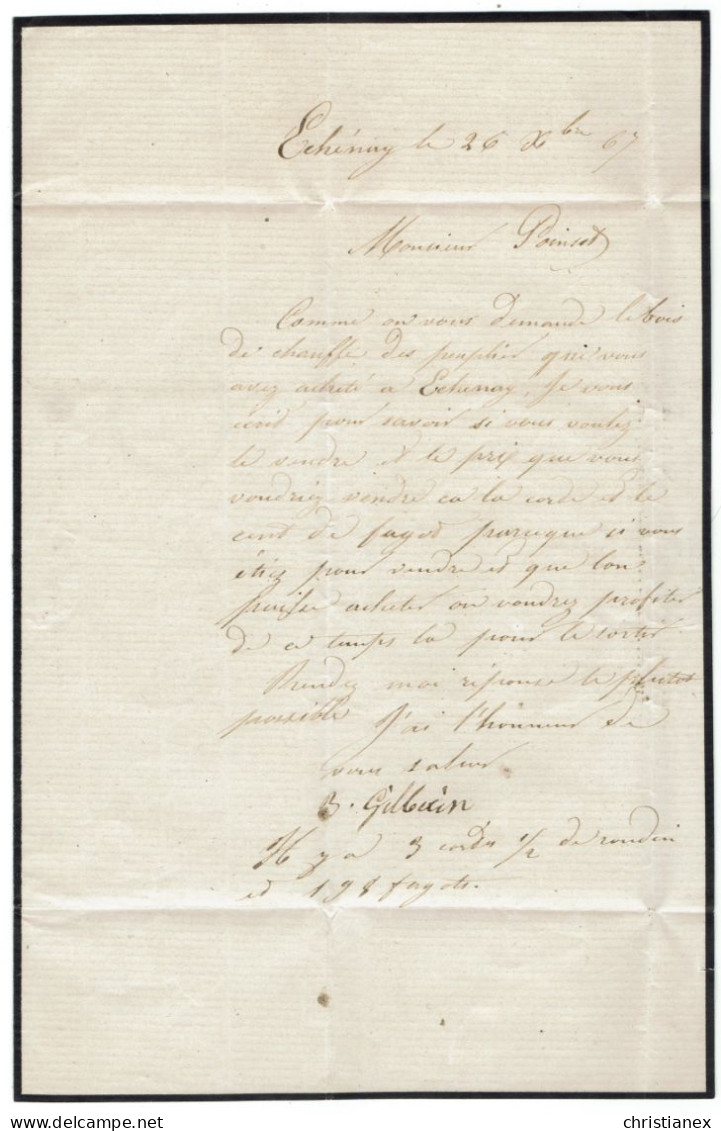 Echénay le 26 Xbre 67
Monsieur Poinsot
Comme on vous demande le bois
de chauffe des peuplier que vous
avez acheté a Echenay, Je vous
écrit pour savoir si vous voulez
le vendre et le prix que vous
voudriez vendre ca la corde et le
cent de fagot parceque si vous
étiez pour vendre et que lon
puisse acheter on voudrez profiter
de ce temps la pour le sortir
Rendez moi réponse le plutot
possible J'ai l'honneur de
vous saluer
B. Gilbein
Il y a 3 cordes 1/2 de rondin
et 198 fagots.
christianex